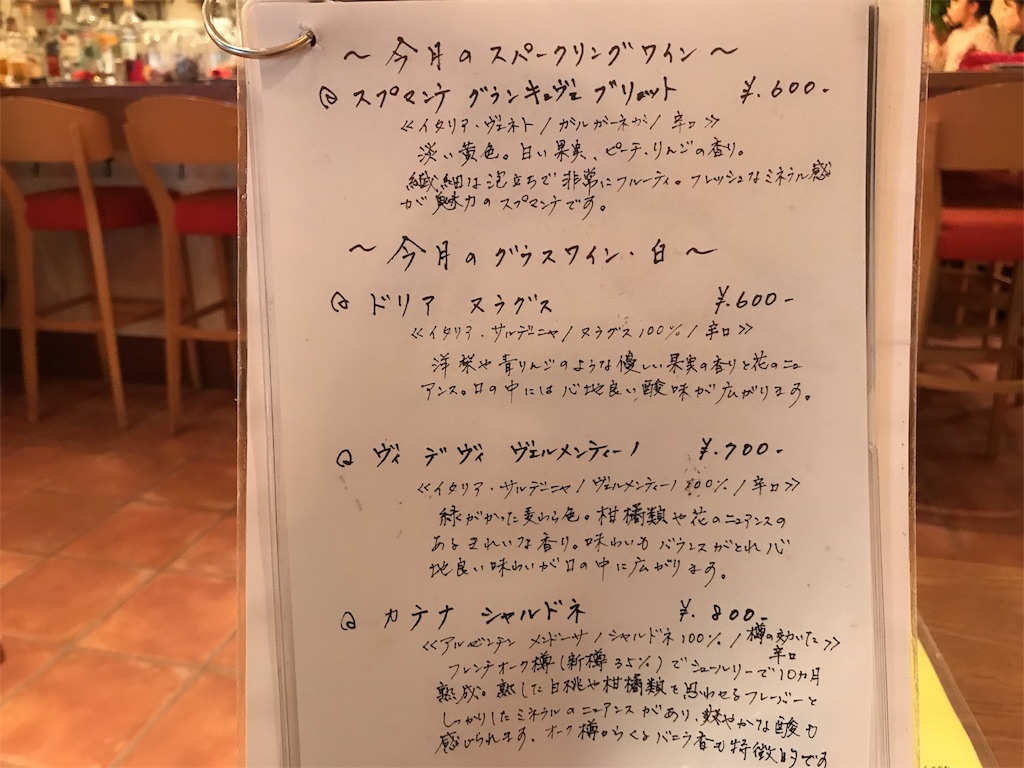 〜 今月のスパークリングワイン 〜
スプマンテ グランキュヴェ ブリュット ¥.600-
≪イタリア・ヴェネト / ガルガーネガ / 辛口≫
淡い黄色。白い果実、ピーチ、りんごの香り。
繊細な泡立ちで非常にフルーティ。フレッシュなミネラル感
が魅力のスプマンテです。
〜 今月のグラスワイン・白 〜
ドリア ヌラグス ¥.600-
≪イタリア・サルデニャ / ヌラグス100% / 辛口≫
洋梨や青りんごのような優しい果実の香りと花のニュ
アンス。口の中には心地良い酸味が広がります。
ヴィ デヴィ ヴェルメンティーノ ¥.700-
≪イタリア・サルデニャ / ヴェルメンティーノ 100% / 辛口≫
緑がかった麦わら色。柑橘類や花のニュアンスの
あるきれいな香り。味わいもバランスがとれ心
地良い味わいが口の中に広がります。
カテナ シャルドネ ¥.800-
≪アルゼンチン メンドーサ / シャルドネ100% / 樽の効いた≫
辛口
フレンチオーク樽(新樽35%)でシュールリーで10カ月
熟成。熟した白桃や柑橘類を思わせるフレーバーと
しっかりしたミネラルのニュアンスがあり、爽やかな酸も
感じられます。オーク樽からくるバニラ香も特徴的です